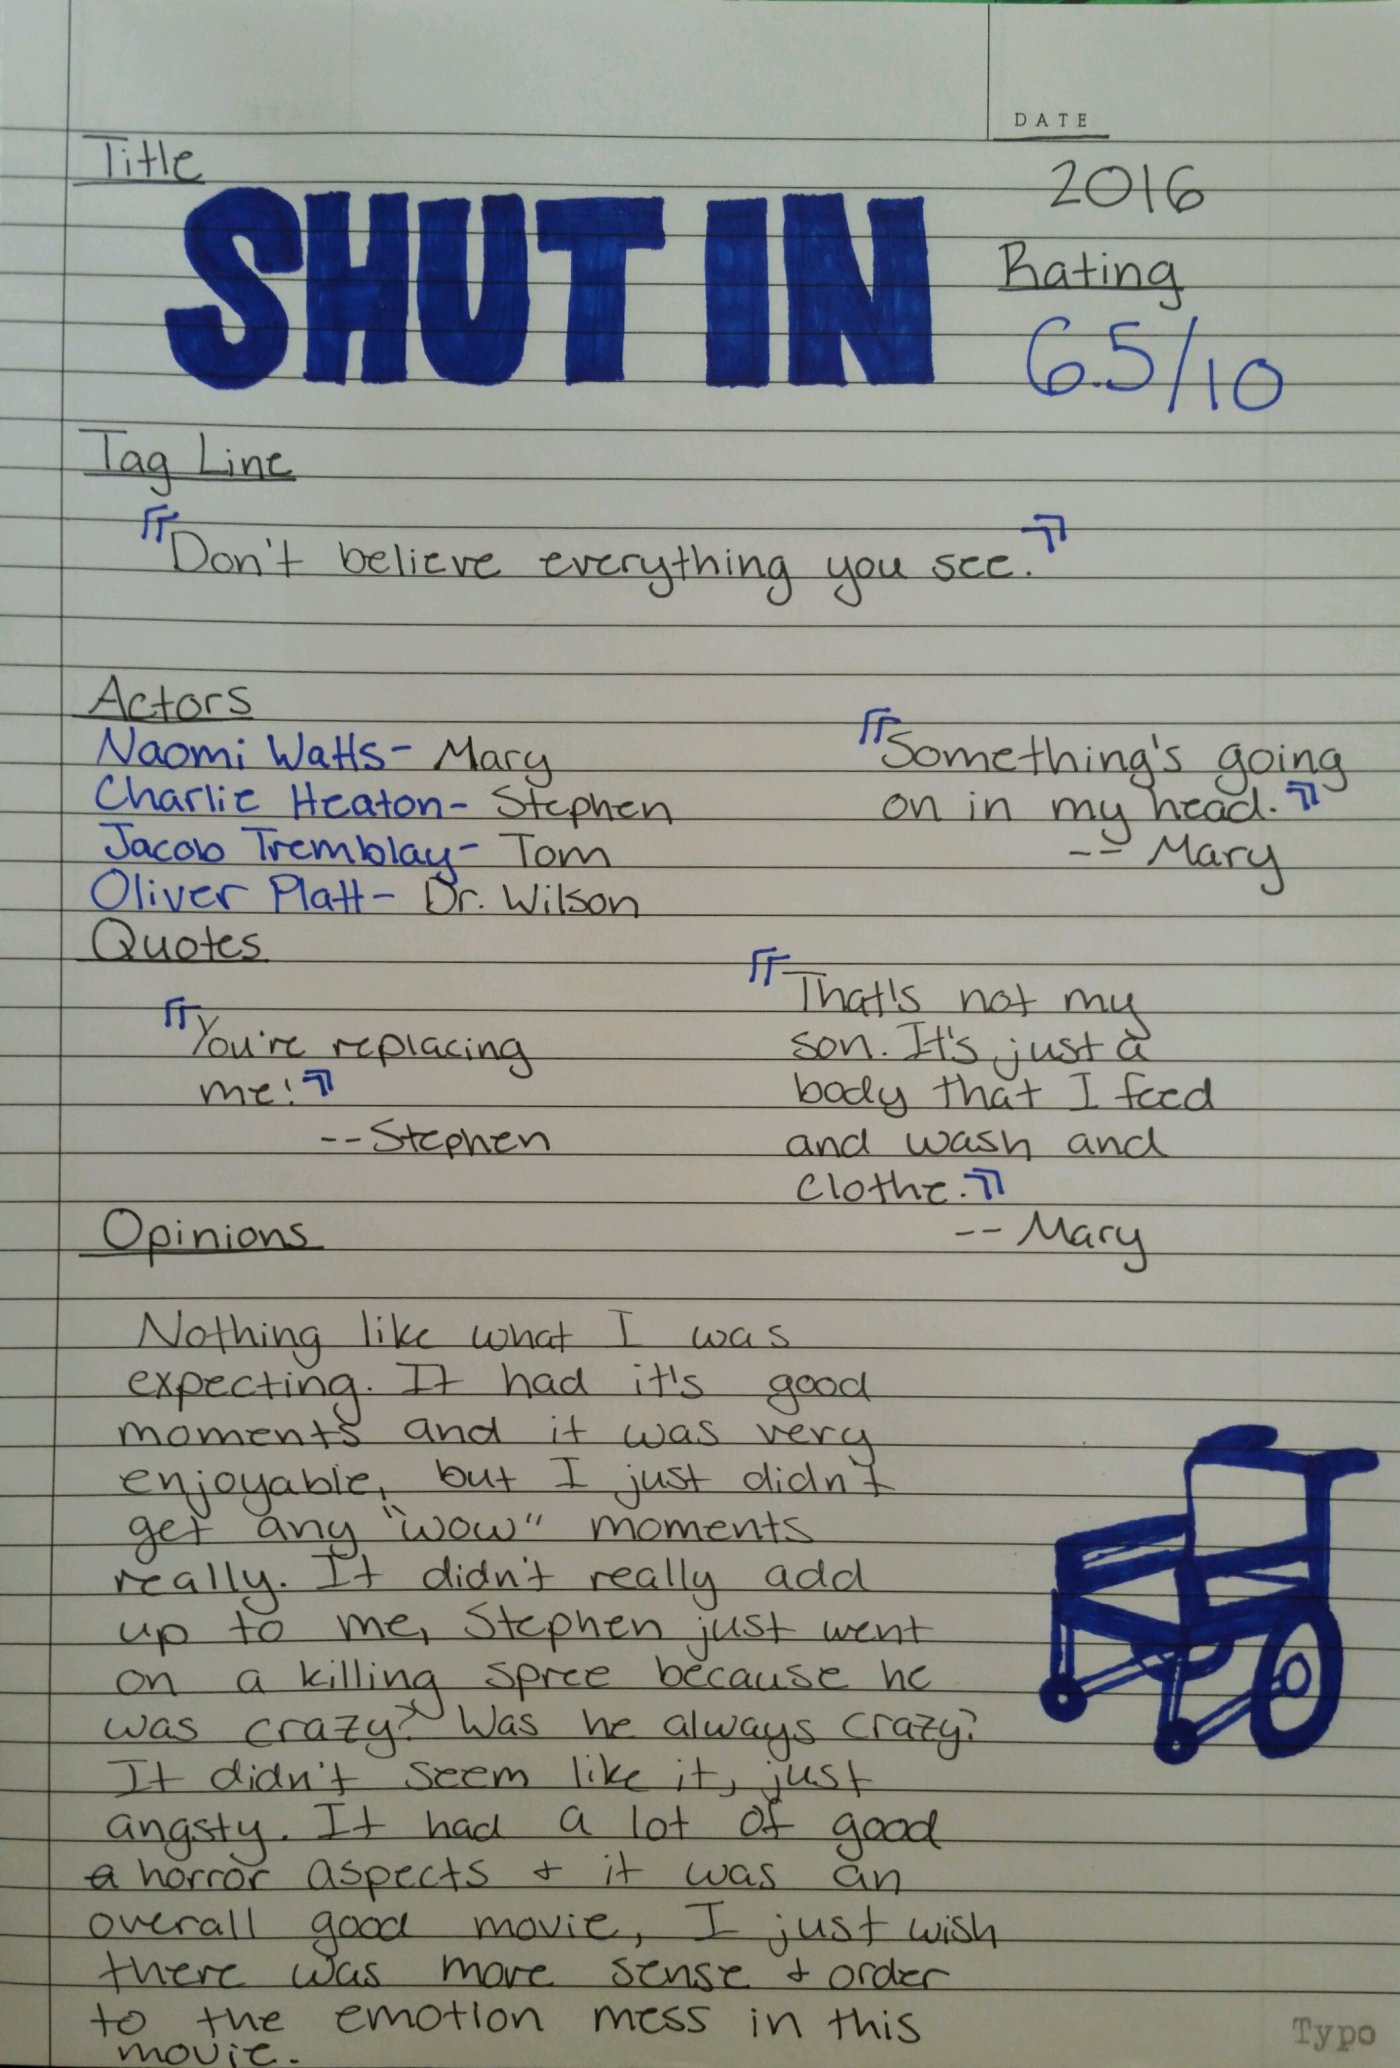 DATE
Title
SHUT IN
2016
Rating
6.5/10
Tag Line
"Don't believe everything you see."
Actors
Naomi Watts- Mary
Charlie Heaton- Stephen
Jacob Tremblay- Tom
Oliver Platt- Dr. Wilson
"Something's going
on in my head."
-- Mary
Quotes
"You're replacing
me!"
--Stephen
"That's not my
son. It's just a
body that I feed
and wash and
clothe."
-- Mary
Opinions
Nothing like what I was
expecting. It had it's good
moments and it was very
enjoyable, but I just didn't
get any "wow" moments
really. It didn't really add
up to me, Stephen just went
on a killing spree because he
was crazy? Was he always crazy?
It didn't seem like it, just
angsty. It had a lot of good
a horror aspects + it was an
overall good movie, I just wish
there was more sense + order
to the emotion mess in this
movie.
Typo